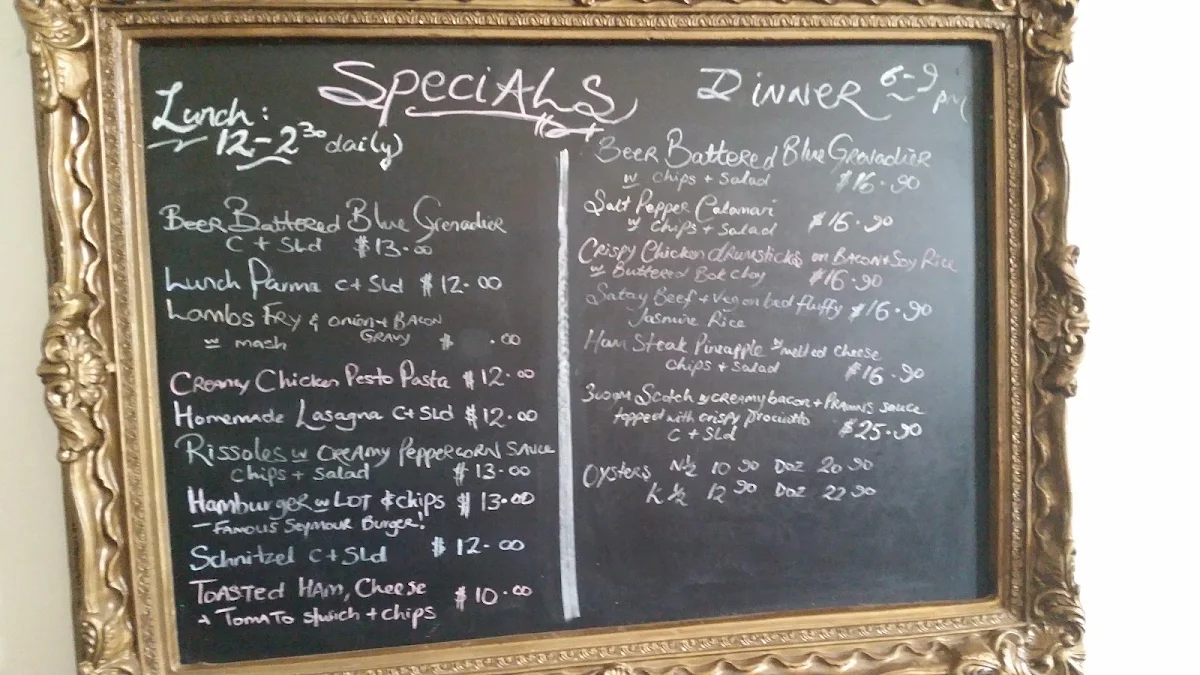 Specials
Lunch:
12-2³⁰ daily)
Beer Battered Blue Grenadier
C + SLd $13.00
Lunch Parma C+SLd $12.00
Lambs Fry & onion + Bacon
w mash Gravy $ .00
Creamy Chicken Pesto Pasta $12.00
Homemade Lasagna C+SLd $12.00
Rissoles w Creamy Peppercorn Sauce
chips + salad $13.00
Hamburger w LOT & chips $13.00
- Famous Seymour Burger!
Schnitzel C+SLd $12.00
Toasted Ham, Cheese $10.00
+ Tomato s/wich + chips
Dinner 6-9 pm
Beer Battered Blue Grenadier
w chips + Salad $16.90
Salt Pepper Calamari $16.90
w chips + salad
Crispy Chicken drumsticks on Bacon + Soy Rice
w Buttered Bok choy $16.90
Satay Beef + Veg on bed fluffy $16.90
Jasmine Rice
Ham Steak Pineapple w melted cheese
chips + salad $16.90
300gm Scotch w creamy bacon + Prawns sauce
topped with crispy prociutto $25.90
C + SLd
Oysters N½ 10 90 Doz 20 90
K ½ 12 90 Doz 22 90